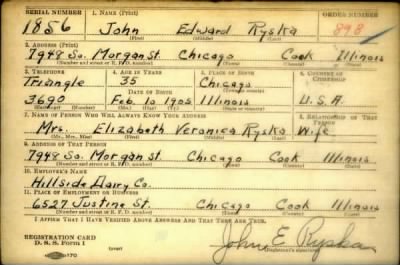 SERIAL NUMBER 1. NAME (Print) ORDER NUMBER
1856 John Edward Ryska 898
(First) (Middle) (Last)
2. ADDRESS (Print)
7948 So. Morgan St. Chicago Cook Illinois
(Number and street or R. F. D. number) (Town) (County) (State)
3. TELEPHONE 4. AGE IN YEARS 5. PLACE OF BIRTH 6. COUNTRY OF CITIZENSHIP
Triangle 35 Chicago
DATE OF BIRTH
3690 Feb. 10 1905 Illinois U.S.A.
7. NAME OF PERSON WHO WILL ALWAYS KNOW YOUR ADDRESS 8. RELATIONSHIP OF THAT PERSON
Mrs. Elizabeth Veronica Ryska Wife
(Mr., Mrs., Miss) (First) (Middle) (Last)
9. ADDRESS OF THAT PERSON
7948 So. Morgan St. Chicago Cook Illinois
(Number and street or R. F. D. number) (Town) (County) (State)
10. EMPLOYER'S NAME
Hillside Dairy Co.
11. PLACE OF EMPLOYMENT OR BUSINESS
6527 Justine St Chicago Cook Illinois
(Number and street or R. F. D. number) (Town) (County) (State)
I AFFIRM THAT I HAVE VERIFIED ABOVE ANSWERS AND THAT THEY ARE TRUE.
REGISTRATION CARD
D. S. S. Form 1 John E. Ryska
(Registrant's signature)